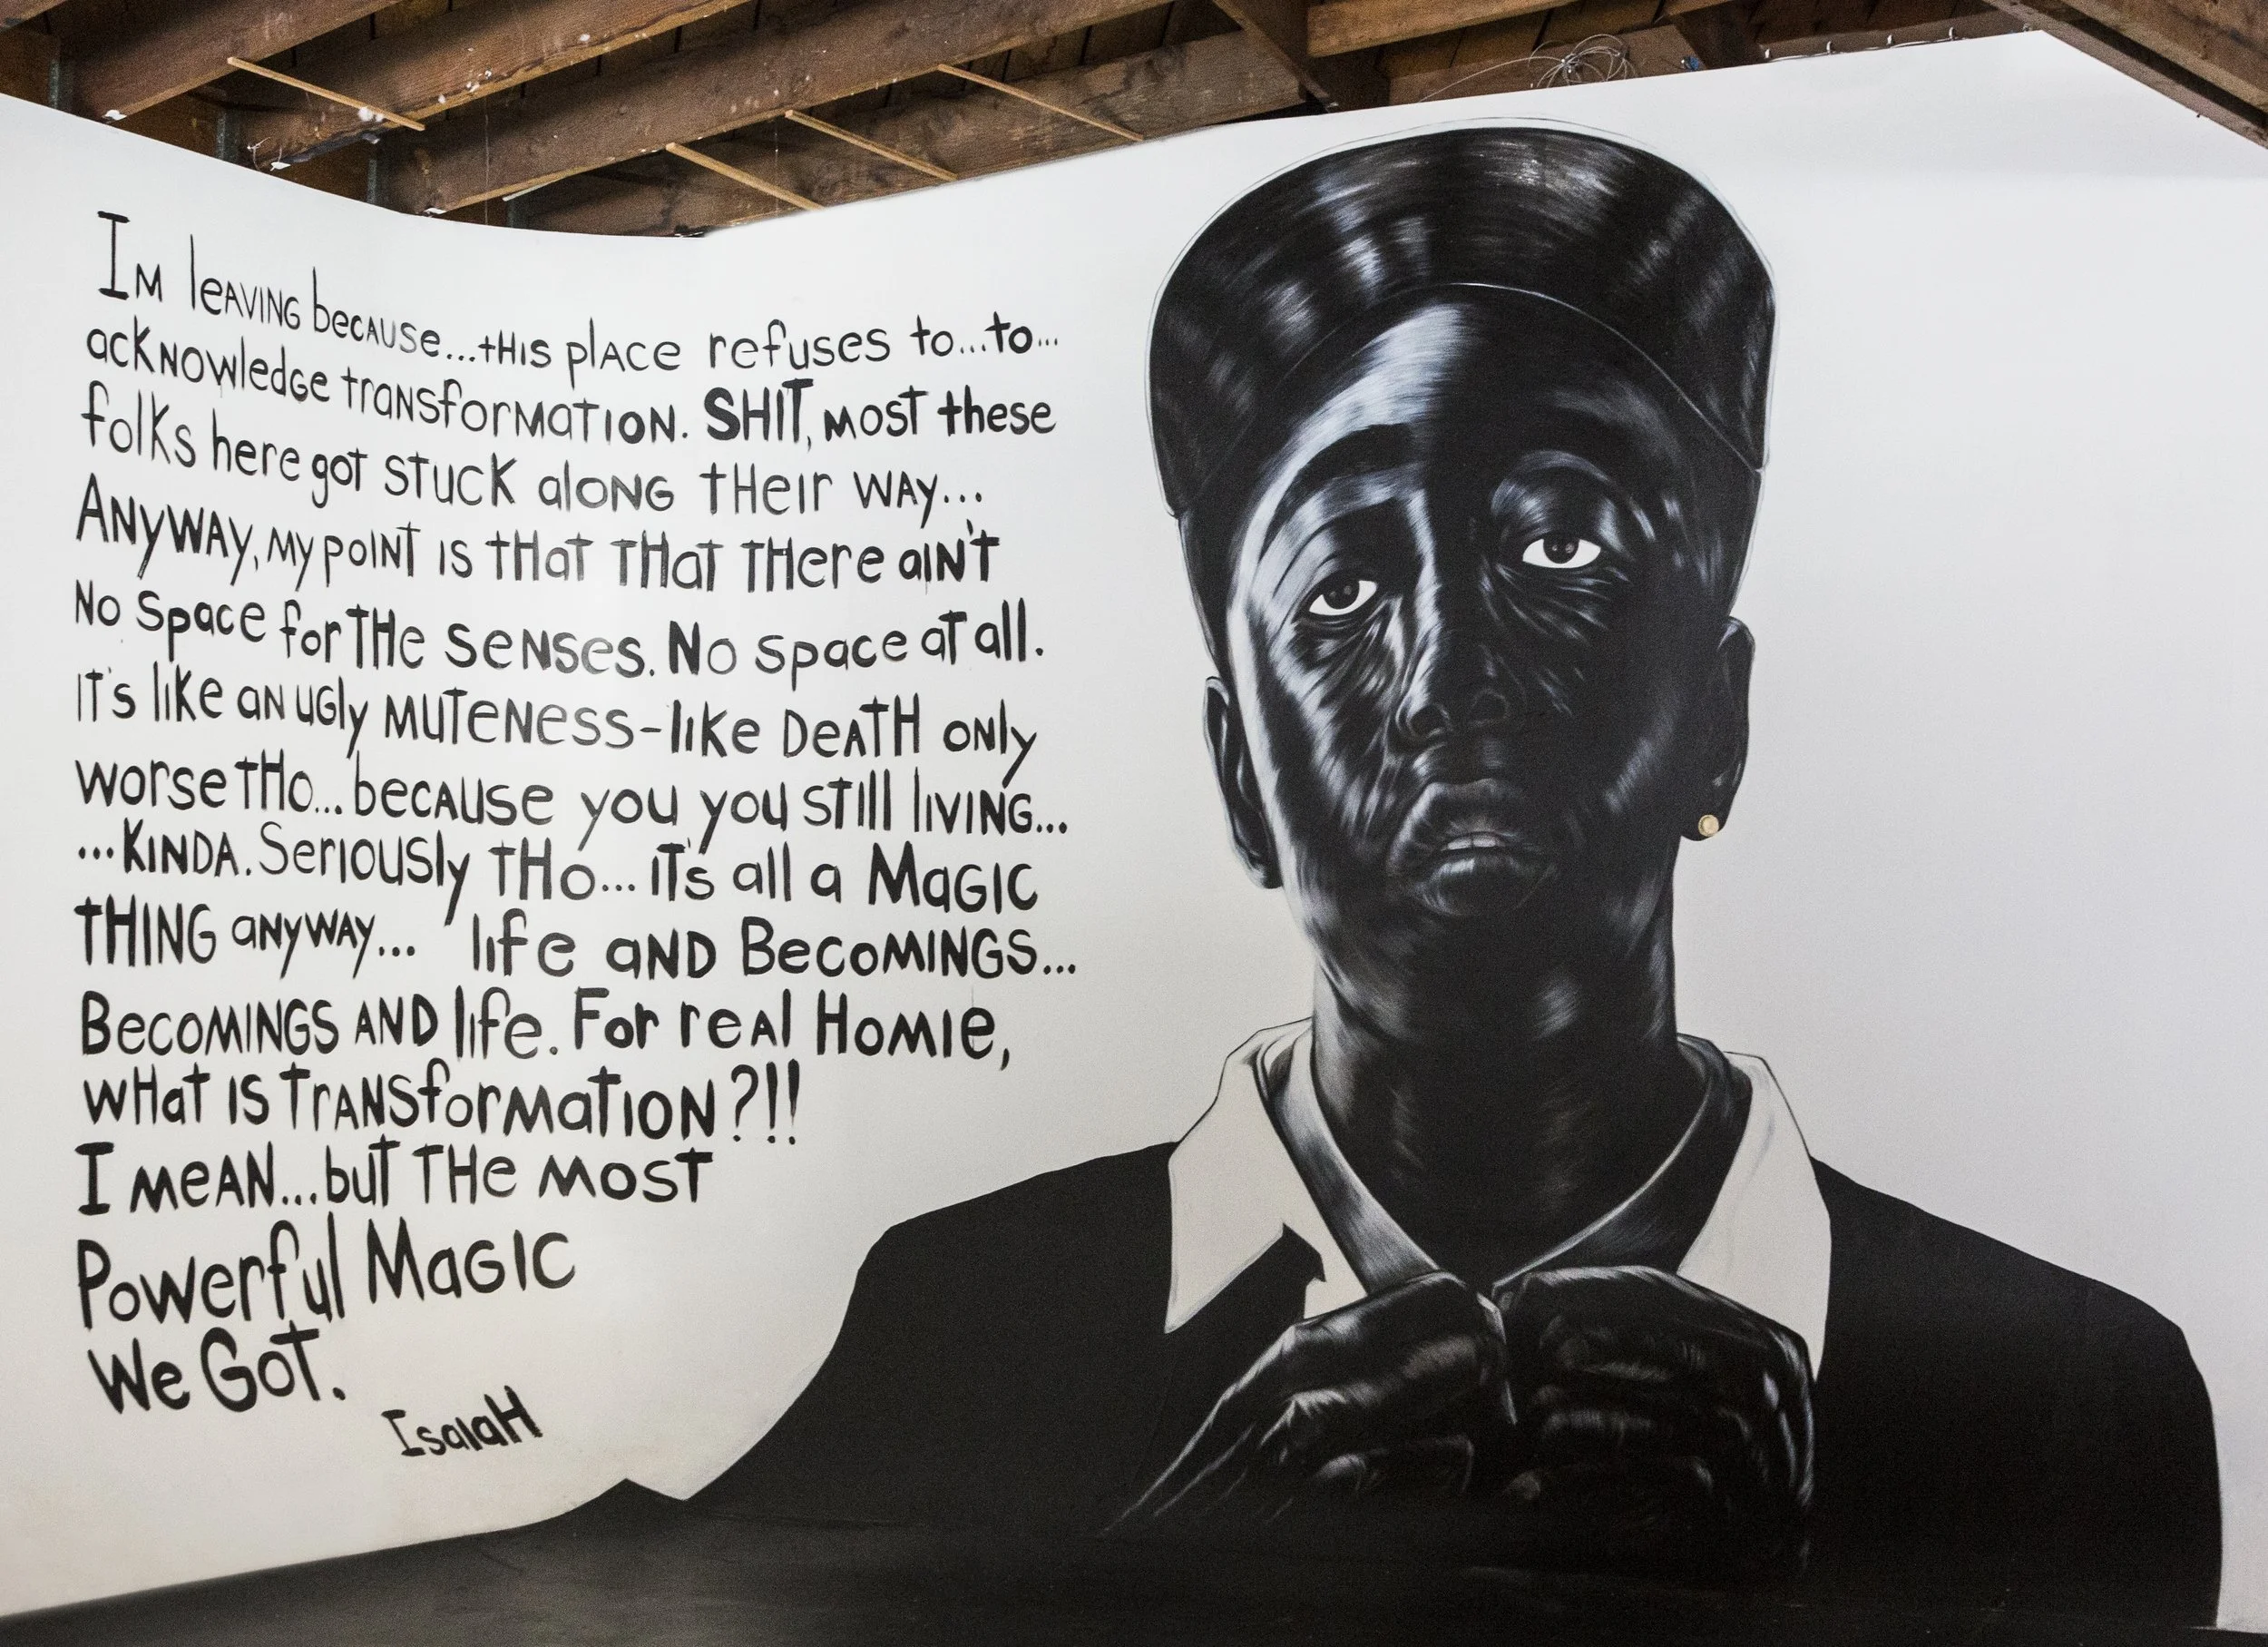 IM leAVING becAUSe...tHIS plAce refuses to...to...
acKNOwledGe traNSforMATION. SHIT, MOST these
folks here got stuck aloNG tHeir WAY...
ANYWAY, MY POINT IS tHat THat THere aIN'T
No Space for THe SeNSes. No space at all.
IT'S like aN UGly MUTeNess-like DeATH ONly
worse tHo...becAuse you you still lIVING...
...KINDA. Seriously THo... it's all a MaGIC
tHING aNYWAY... life aND BecoMINGS...
BecoMINGS AND life. For reAl HoMIe,
wHat IS TrANSforMatION?!!
I MeAN...but THe MOST
Powerful MaGIC
We GoT.
IsaiaH